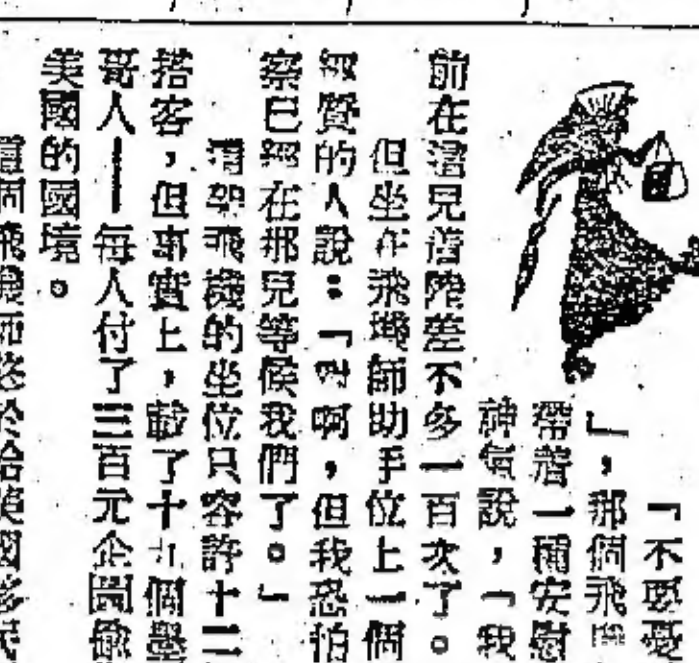 「不要憂
」，那個飛
帶着一種安慰
神氣說，「我
前在這兒着陸差不多一百次了。
但坐在飛機師助手位上一個
的人說：「對啊，但我恐怕
察已經在那兒等候我們了。」
這架飛機的坐位只容許十二
搭客，但事實上，載了十九個墨
哥人——每人付了三百元企圖偷
美國的國境。
這個飛機師終於給美國移民